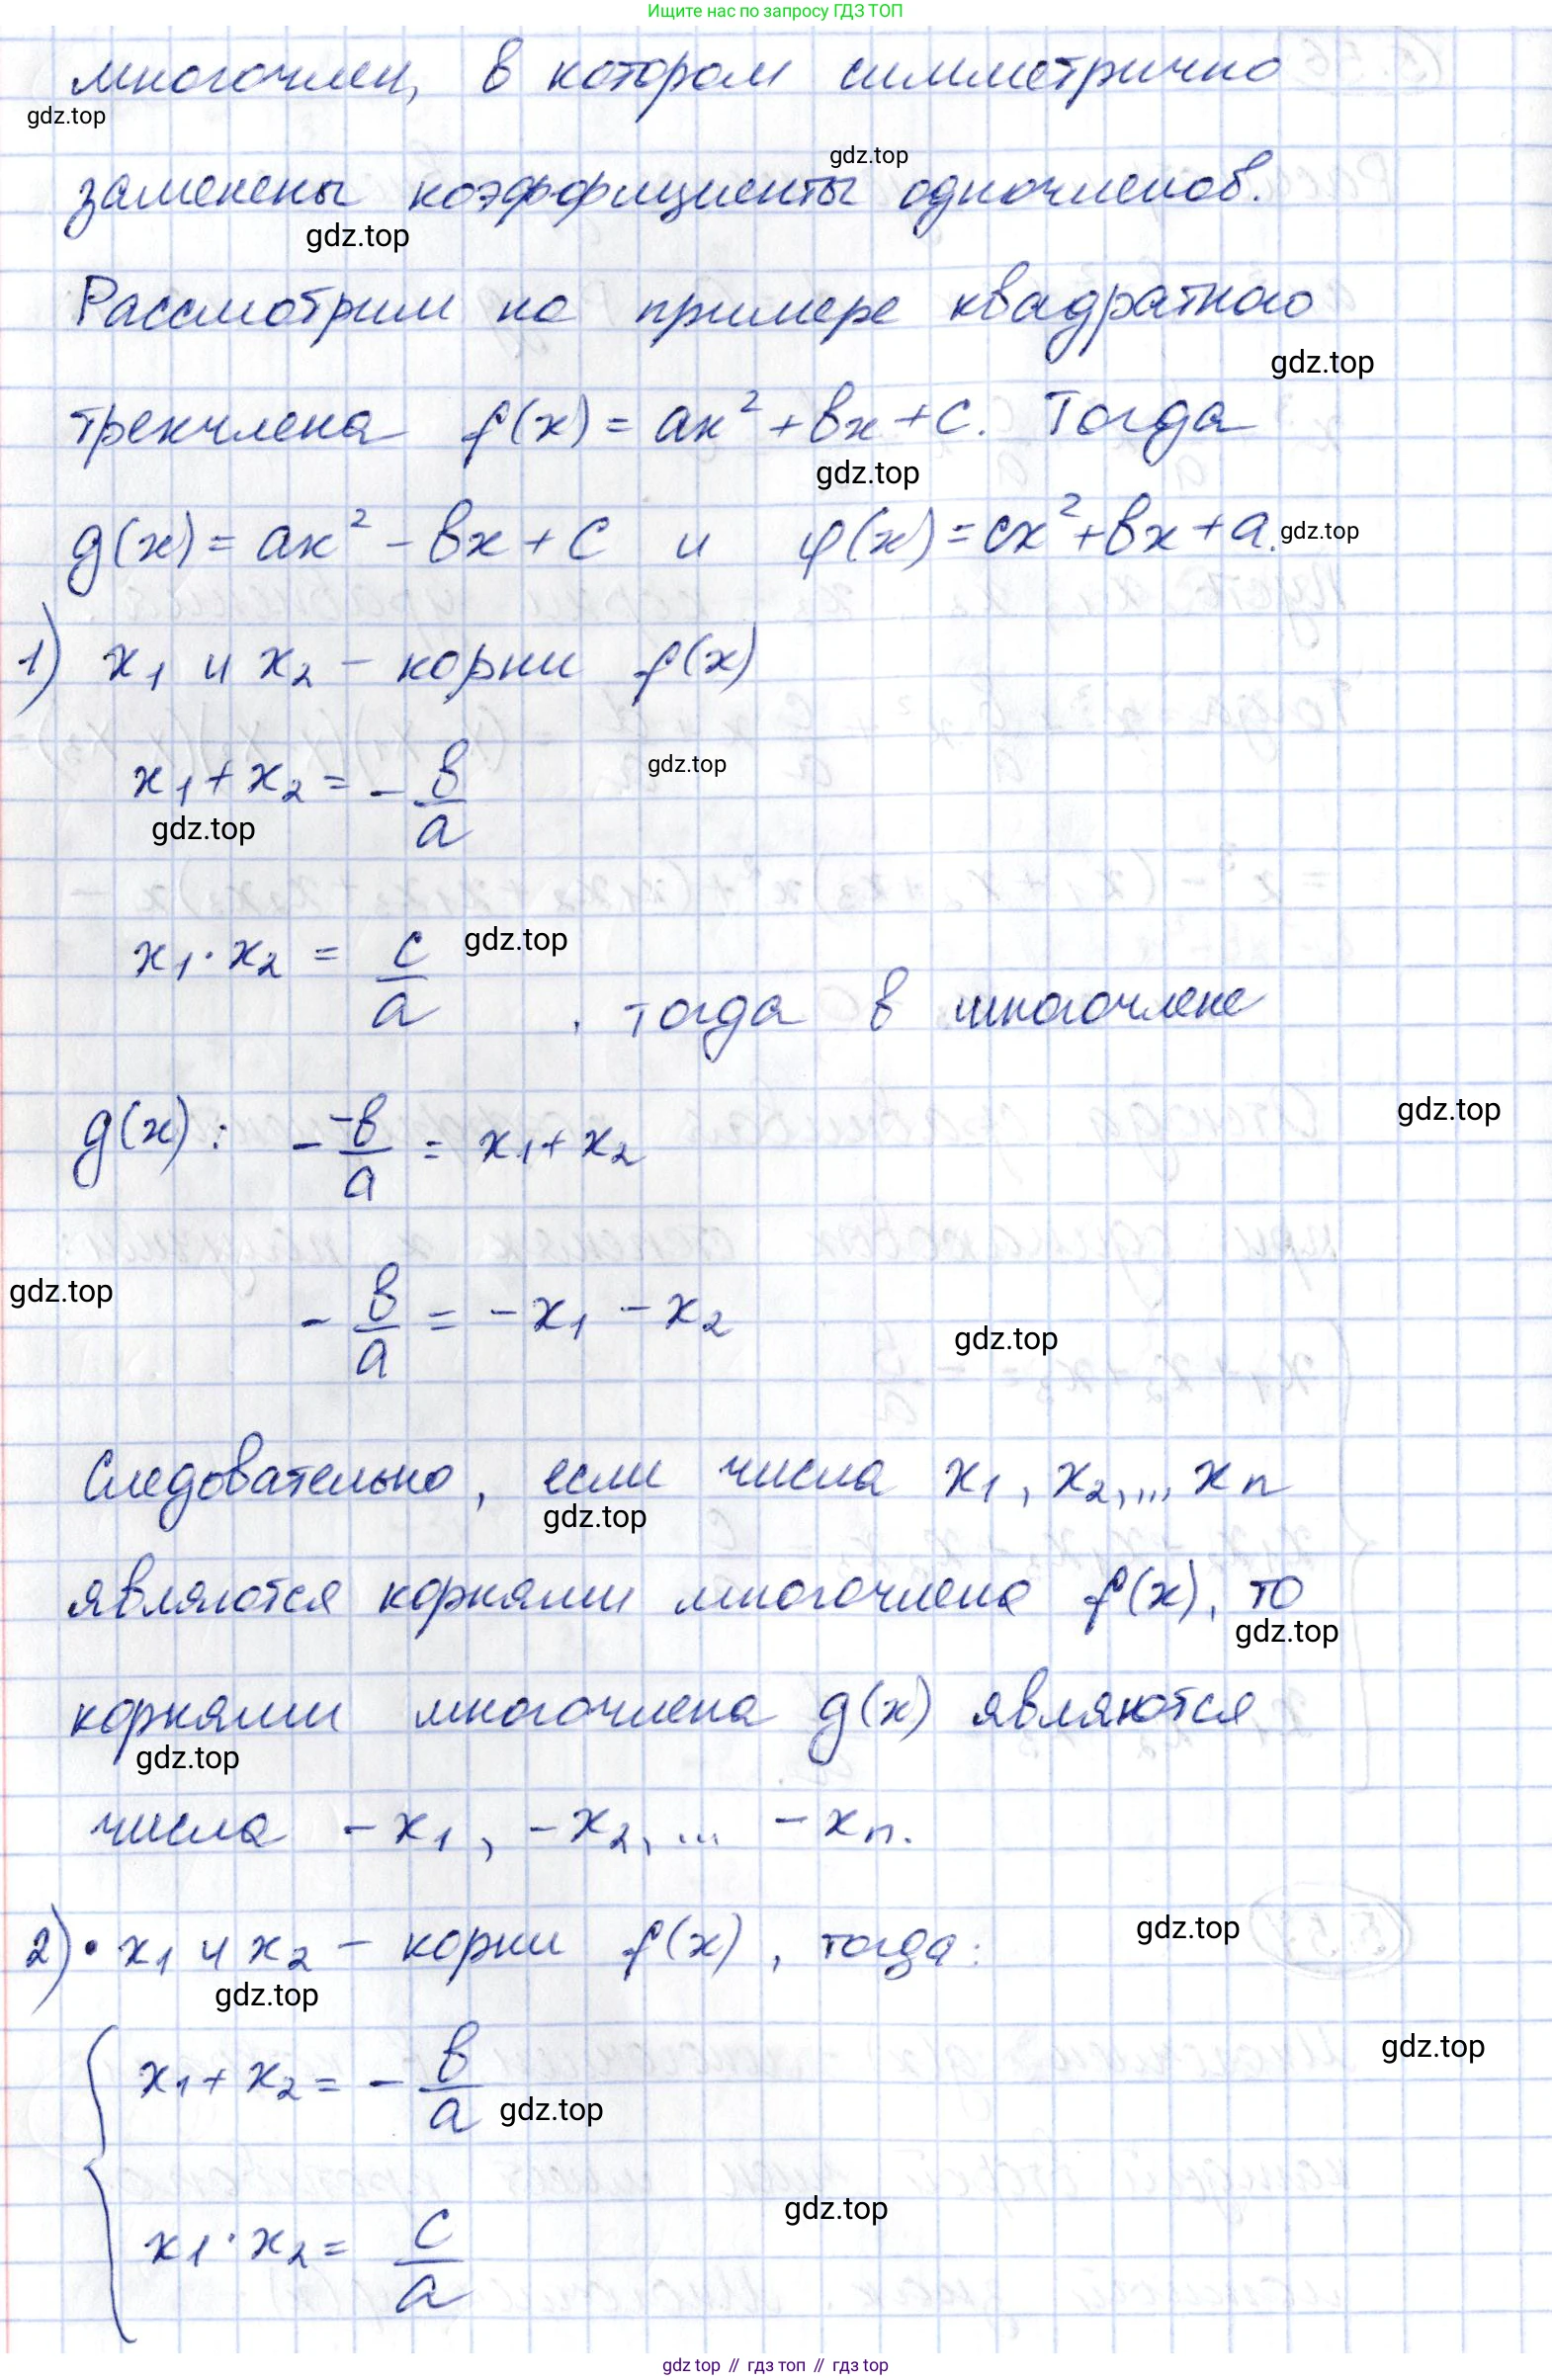 Ищите нас по запросу ГДЗ ТОП
многочлен, в котором симметрично
gdz.top
gdz.top
заменены коэффициенты одночленов.
gdz.top
Рассмотрим на примере квадратного
gdz.top
трехчлена f(x) = ax² + bx + c. Тогда
gdz.top
g(x) = ax² - bx + c и φ(x) = cx² + bx + a.
gdz.top
1) x₁ и x₂ - корни f(x)
x₁ + x₂ = - b/a
gdz.top
gdz.top
x₁ · x₂ = c/a , тогда в многочлене
gdz.top
g(x): - -b/a = x₁ + x₂
gdz.top
gdz.top
- b/a = -x₁ - x₂
gdz.top
Следовательно, если числа x₁, x₂, ... xₙ
gdz.top
являются корнями многочлена f(x), то
gdz.top
корнями многочлена g(x) являются
gdz.top
числа -x₁, -x₂, ... -xₙ.
2) • x₁ и x₂ - корни f(x), тогда:
gdz.top
gdz.top
{ x₁ + x₂ = - b/a
gdz.top
gdz.top
x₁ · x₂ = c/a
gdz.top
gdz top // гдз топ // гдз top